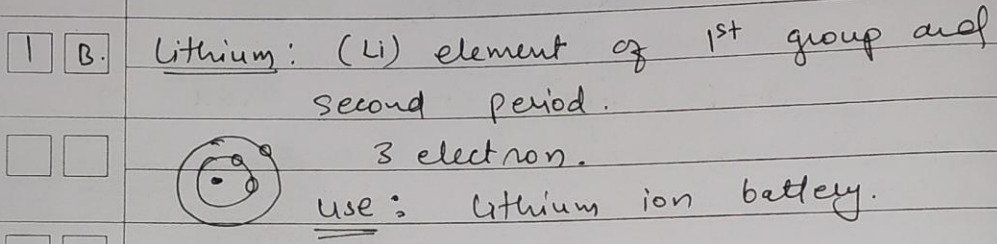 1 B. Lithium : (Li) element of 1st group and
second period.
3 electron.
use : Lithium ion battery.